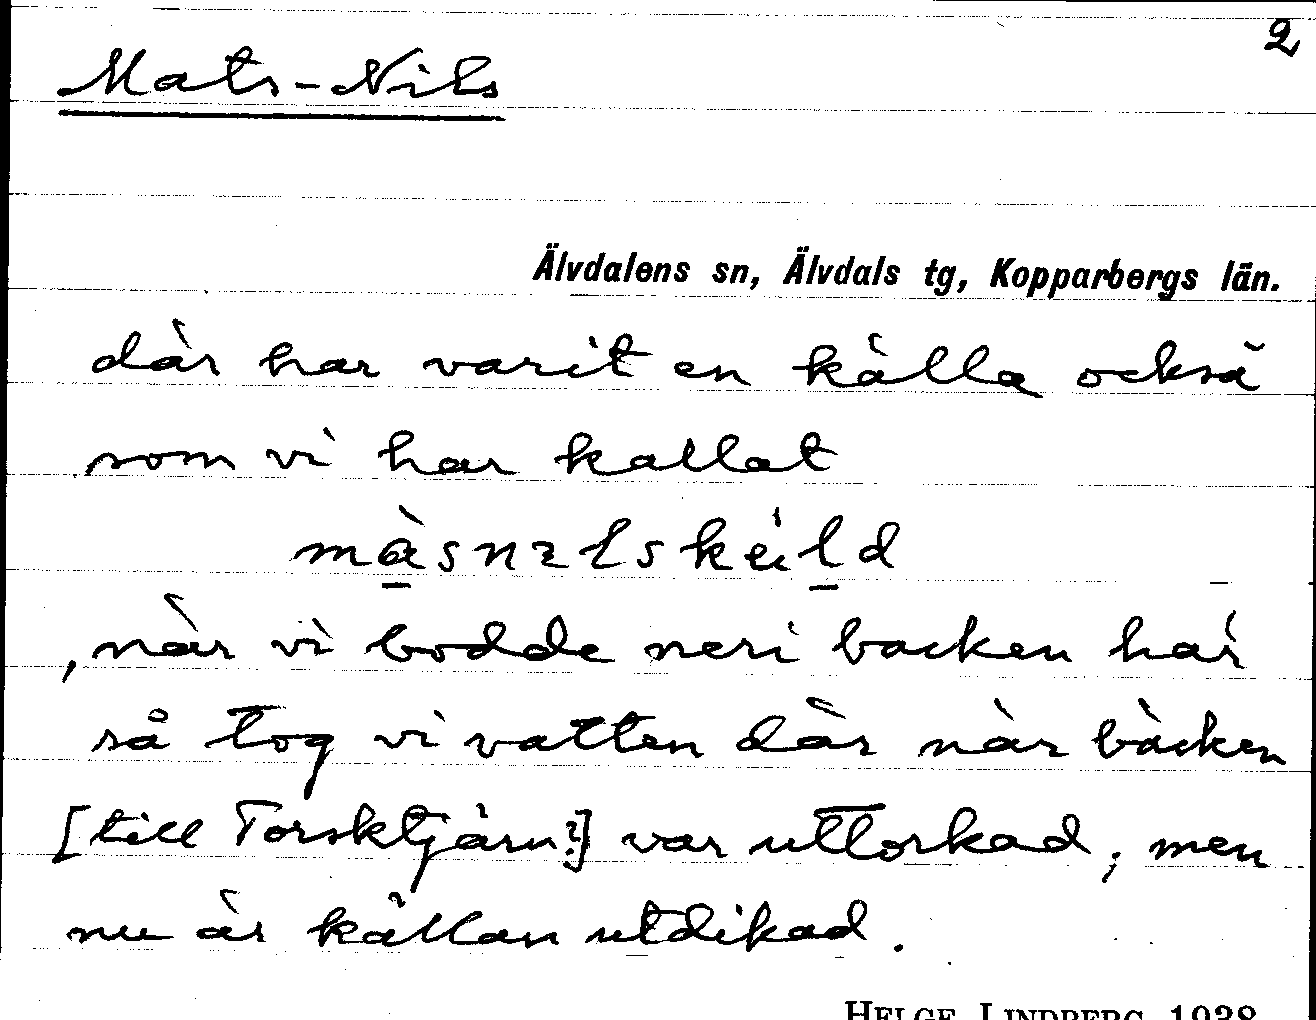 2
Mats-Nils
Älvdalens sn, Älvdals tg, Kopparbergs län.
där har varit en källa också
som vi har kallat
màsnɪlskèld
, när vi bodde neri backen här
så tog vi vatten där när bäcken
[till Torsktjärn?] var uttorkad; men
nu är källan utdikad.
HELGE LINDBERG 1938